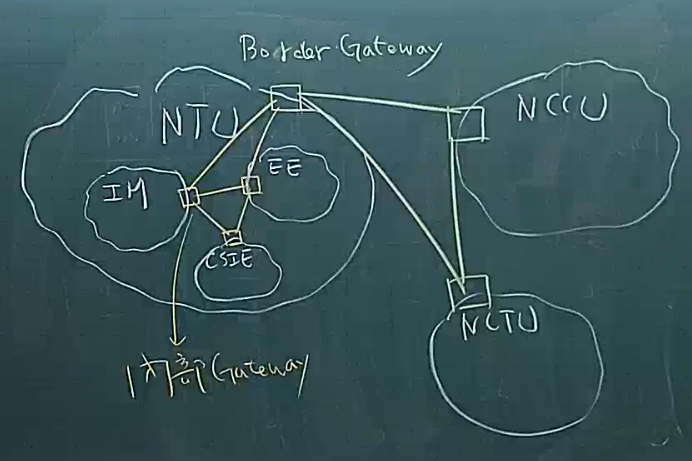 Border Gateway
NTU
NCCU
EE
IM
CSIE
NCTU
內部Gateway